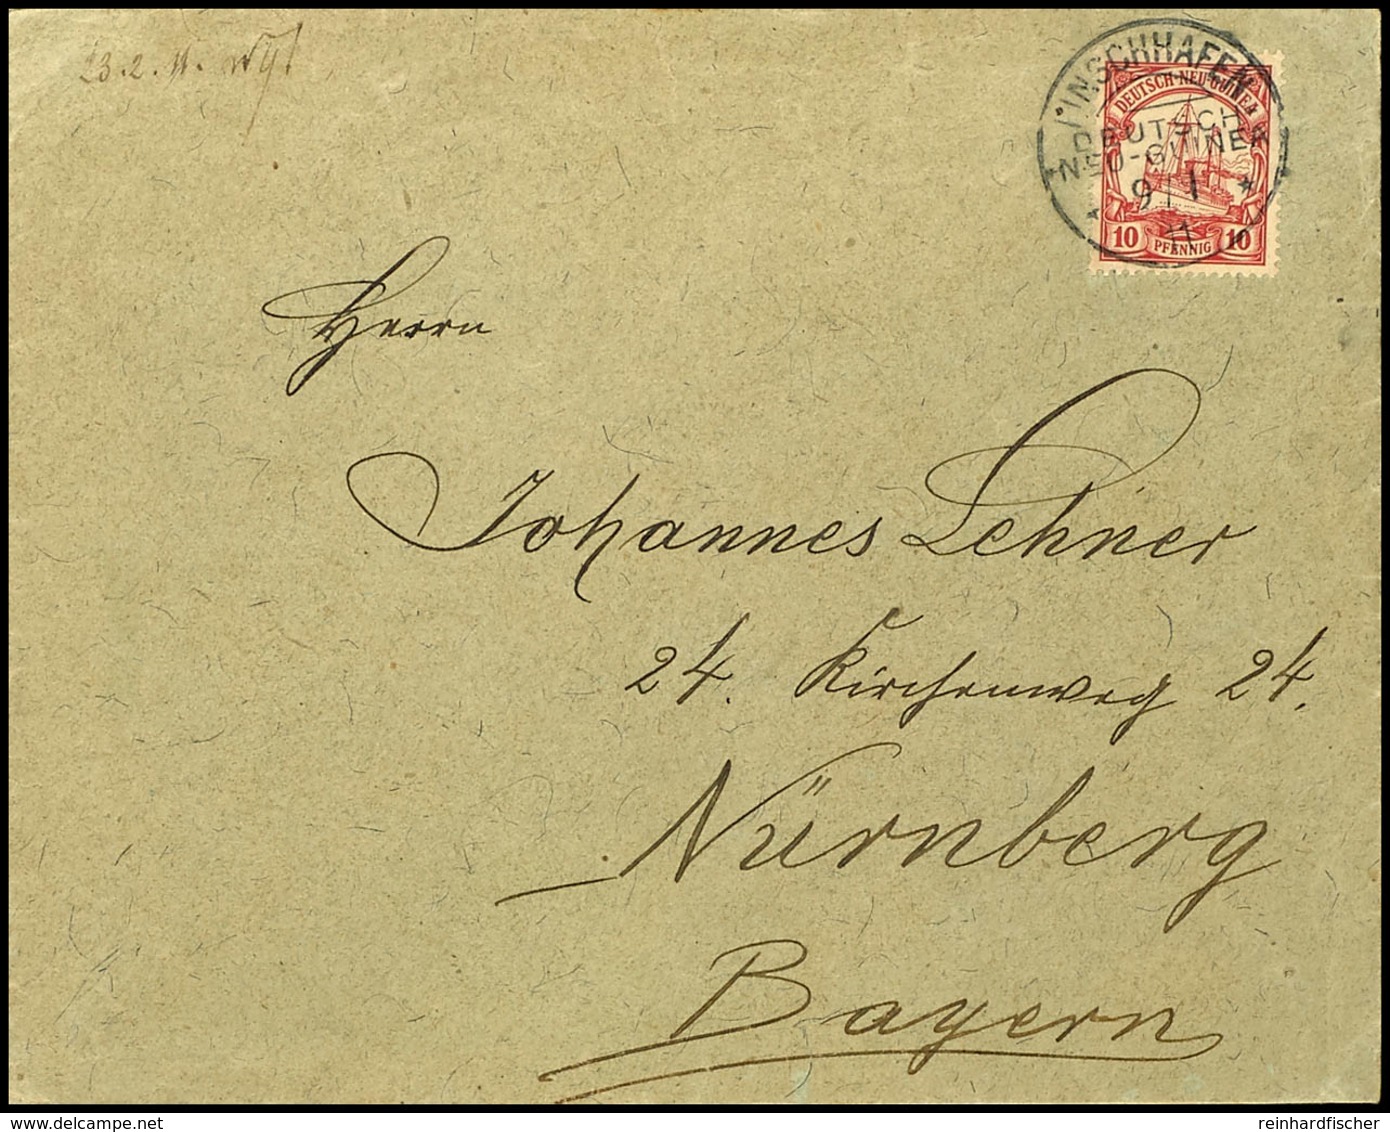 23.2.11.
FINSCHHAFEN
DEUTSCH-NEU-GUINEA
DEUTSCH
NEU-GUINEA
9 1
11
10 PFENNIG 10
Herrn
Johannes Lehner
24. Kirchenweg 24.
Nürnberg
Bayern
delcampe.net
reinhardfischer